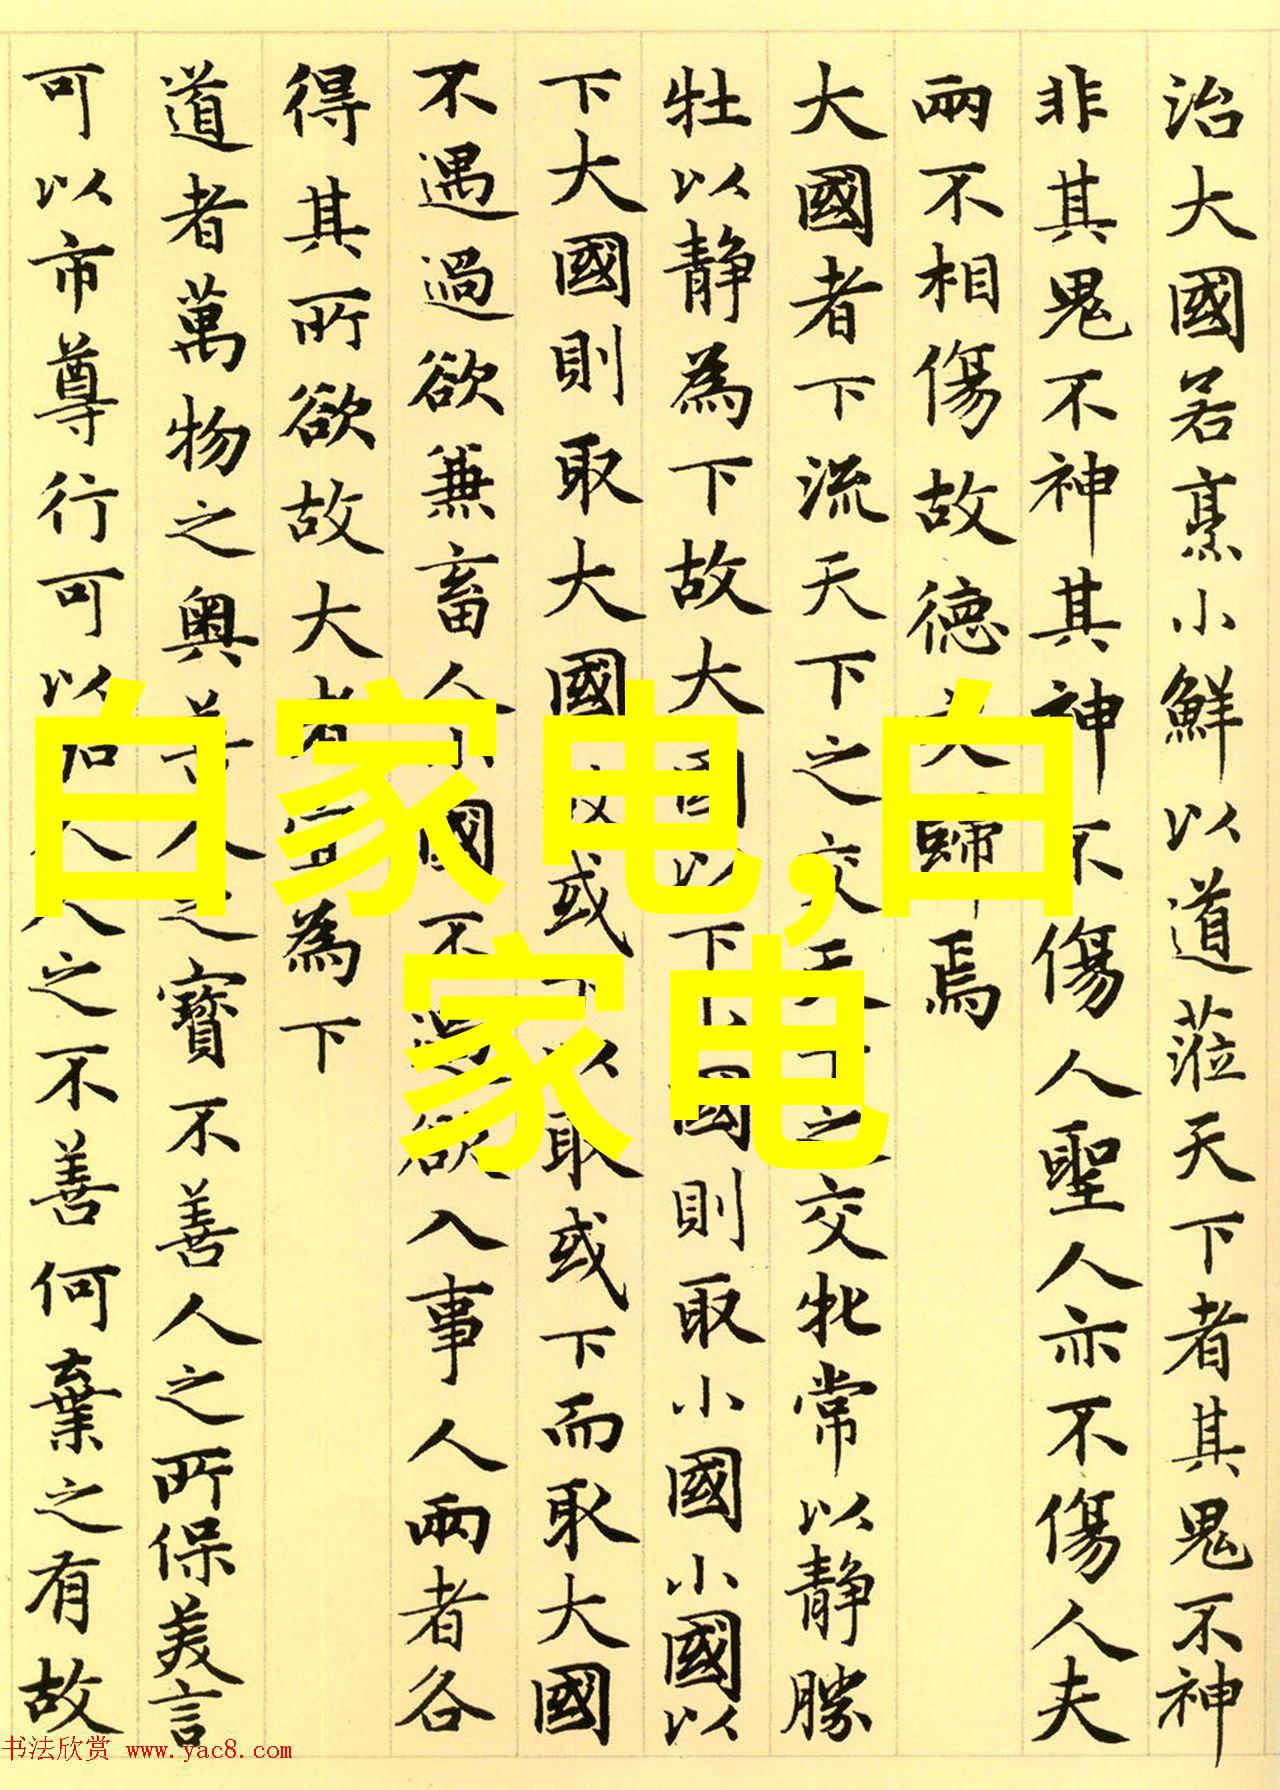 治大國若烹小鮮以道蒞天下者其鬼不神
非其鬼不神其神不傷人聖人亦不傷人夫
兩不相傷故德歸焉
大國者下流天下之交天下之交牝常以静勝
牡以静為下故大國以下小國則取小國小國以
下大國則取大國故或下以取或下而取大國
不遇過欲兼畜人小國不過欲入事人兩者各
得其所欲故大者宜為下
道者萬物之奥善人之寶不善人之所保美言
可以市尊行可以人人之不善何棄之有故
白家电,白
家电
书法欣赏 www.yac8.com